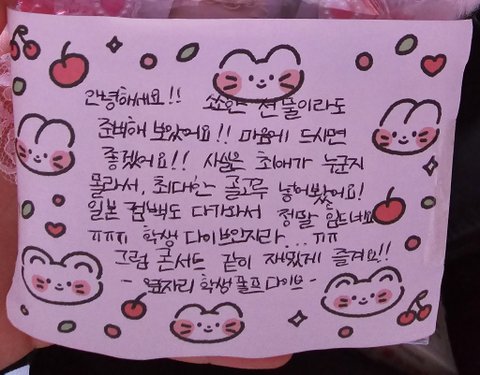 안녕하세요!! 쏘완 선물이라도
준비해 보았어요!! 마음에 드시면
좋겠어요!! 사실은 최애가 누군지
몰라서, 최대한 골고루 넣어봤어요!
일본 컴백도 다가와서 정말 힘드네요
ㅠㅠㅠ 학생 다이브인지라... ㅠㅠ
그럼 콘서트 같이 재밌게 즐겨요!!
- 옆자리 학생 풀프 다이브 -